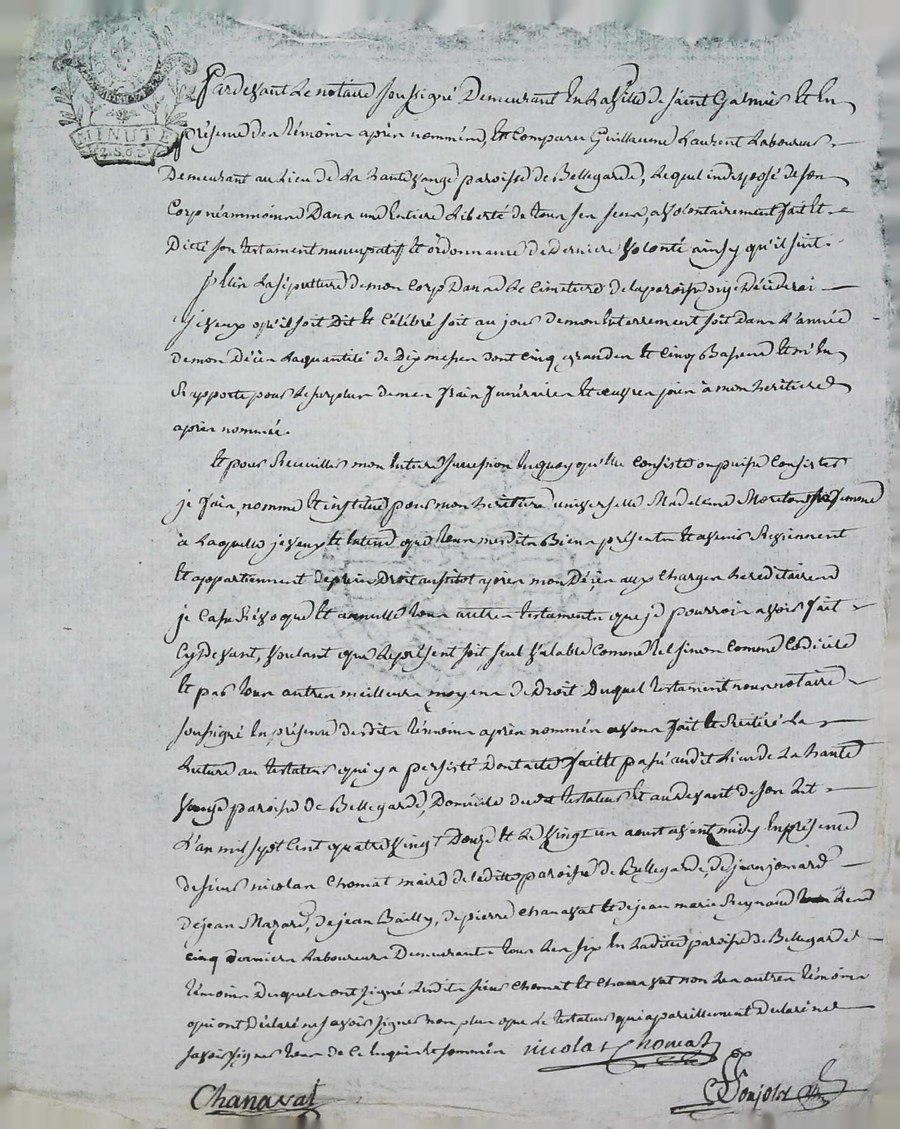 MINUTE
2.S.6.D
Pardevant Le notaire soussigné Demeurant En La ville de saint Galmier Et En
présence des témoins après nommés, Est Comparu Guillaume Laurent Laboureur
Demeurant au Lieu de La haute vange paroisse de Bellegarde, Lequel indisposé de son
Corps néammoins Dans une Entiere Liberté de tous ses sens, a volontairement fait Et
Dicté son testament nuncupatif Et ordonnance de Derniere volonté ainsy qu'il suit.
J'Elis La sépulture de mon Corps Dans Le Cimetiere de la paroisse ou je Décéderai
je veux qu'il soit Dit Et Célébré soit au jour de mon Enterrement soit Dans L'année
de mon Décès La quantité de Dix messes dont cinq grandes Et Cinq Basses Et m'En
Rapporte pour Le surplus de mes frais funéraires Et œuvres pies à mon heritiere
après nommée.
Et pour Recueillir mon Entiere succession En quoy qu'Elle Consiste ou puisse Consister
je fais, nomme Et institue pour mon heritiere universelle Madeleine Moreton sa femme
à Laquelle je veux Et Entend que tous mesdits Biens présents Et avenir Reviennent
Et appartiennent de plein Droit aussitot après mon Décès aux Charges hereditaires
je Casse Révoque Et annulle tous autres testaments que je pourrois avoir fait
Cy Devant, voulant que Le présent soit seul valable Comme tel sinon Comme Codicile
Et par tous autres meilleurs moyens de Droit Duquel testament nous notaire
soussigné En présence desdits témoins après nommés avons fait Et Réitéré La
Lecture au testateur qui y a persisté Dont acte faitte passé audit Lieu de La haute
vange paroisse de Bellegarde, Domicile dudit testateur Et au devant de son Lit
L'an mil sept Cent quatre vingt Douze Et Le vingt un aoust avant midy En présence
de sieur nicolas Chomat maire de Laditte paroisse de Bellegarde, de jean jomard
de jean Mazard, de jean Bailly, de pierre Chanavat Et de jean marie Reynaud Les
cinq derniers Laboureurs Demeurants tous Les six En Ladite paroisse de Bellegarde
témoins Desquels ont signé Lesdits sieurs Chomat Et Chanavat non Les autres témoins
qui ont Déclaré ne savoir signer non plus que Le testateur qui a pareillement Déclaré ne
savoir signer tous de Ce Enquis Et sommés
nicolas Chomat
Chanavat
Ponjolet